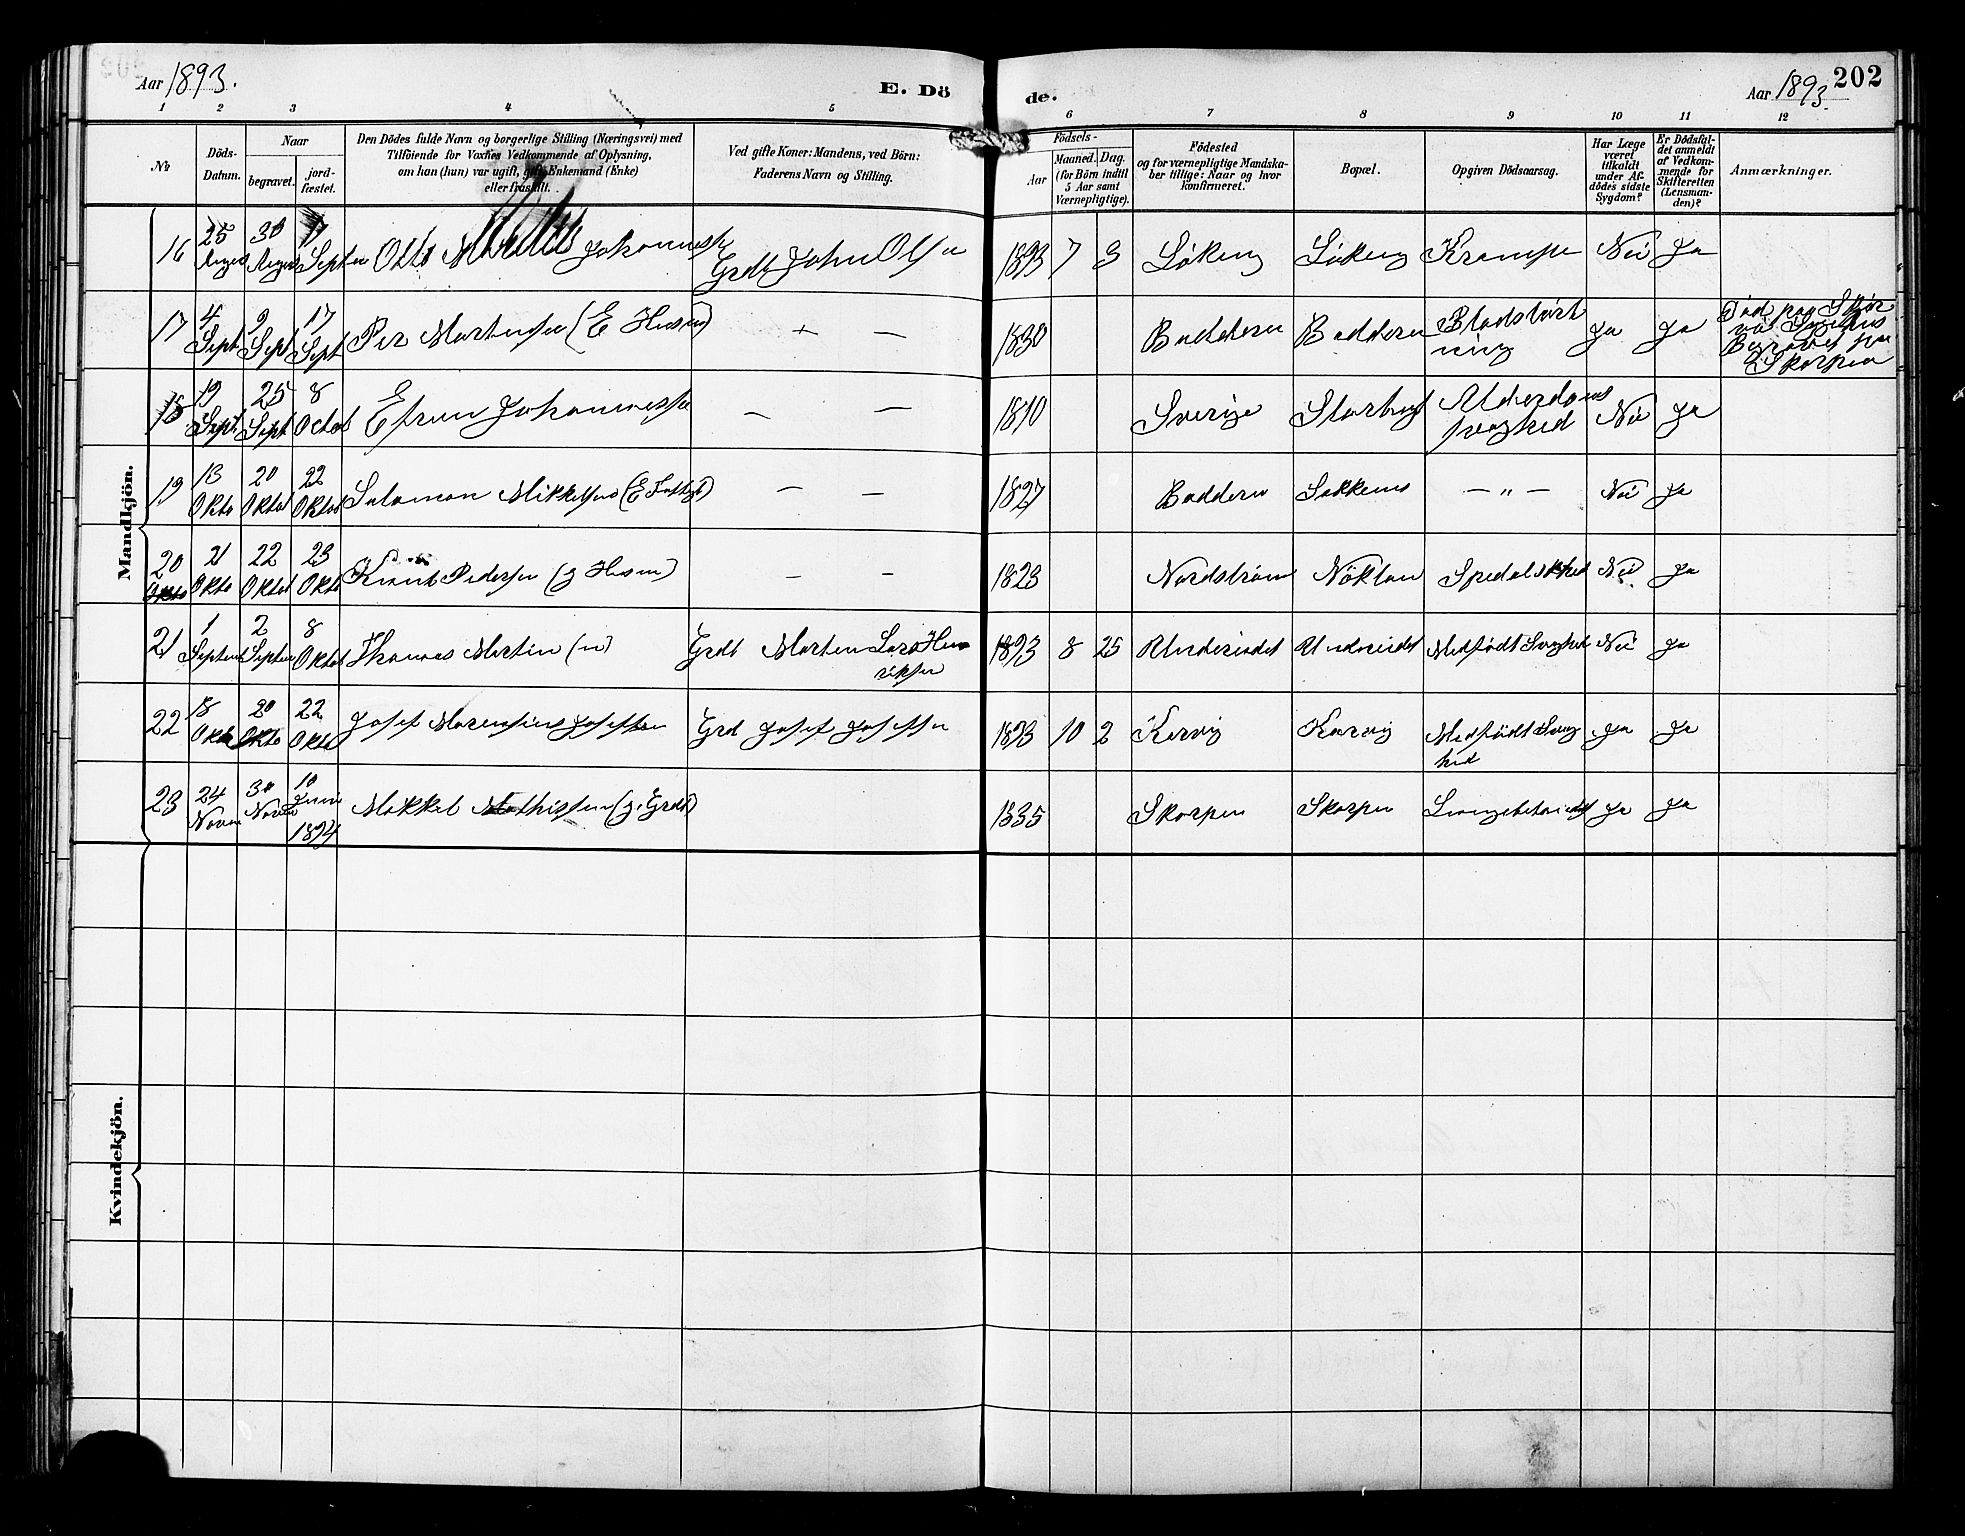 Aar 1893.
E. Dö
de.
Aar 1893.
202
1 2 3 4 5 6 7 8 9 10 11 12
№
Döds-Datum.
Naar
begravet.
jord-fæstet.
Den Dödes fulde Navn og borgerlige Stilling (Næringsvei) med
Tilföiende for Voxnes Vedkommende af Oplysning,
om han (hun) var ugift, gift, Enkemand (Enke)
eller fraskilt.
Ved gifte Koner: Mandens, ved Börn:
Faderens Navn og Stilling.
Födsels-
Aar
Maaned. Dag.
(for Börn indtil
5 Aar samt
Værnepligtige).
Födested
og for værnepligtige Mandska-
ber tillige: Naar og hvor
konfirmeret.
Bopæl.
Opgiven Dödsaarsag.
Har Læge
været
tilkaldt
under Af-
dödes sidste
Sygdom?
Er Dödsfal-
det anmeldt
af Vedkom-
mende for
Skifteretten
(Lensman-
den)?
Anmærkninger.
Mandkjön.
16 25 August 30 August 17 Septer Johannes Grdb John Olsen 1893 7 3 Löking Löking Krampe Nei Ja
17 4 Sept 9 Sept 17 Sept Per Mortensen (E Husm) — — 1830 Badderen Badderen Blodstört
ning Ja Ja Död paa Skjer
Begravet paa
Skorpen
18 19 Sept 25 Sept 8 Octob Efrem Johannessen — — 1810 Sverige Storbugt Alderdoms
svaghed Nei Ja
19 13 Okto 20 Oktob 22 Oktob Salamon Mikkelsen — — 1827 Badderen Sakkemo — „ — Nei Ja
20 Okto 21 Okto 22 Oktob 23 Okto Knut Pedersen (g Husm) — — 1823 Nordström Nöklan Spedalskhed Nei Ja
21 1 Septem 2 Septem 8 Oktob Thomas Martin (n) Grdb Morten Lars Hen
riksen 1893 8 25 Undereidet Undereidet Medfödt Svaghed Nei Ja
22 18 Okto 20 Okto 22 Okto Josef Josefsen Grd Josef Josefsen 1893 10 2 Kervig Karvig Medfödt Svag
hed Ja Ja
23 24 Novem 30 Novem 10 Juni
1894 Mekkel Mathissen (g. Grdb) 1835 Skorpen Skorpen Lungebetændelse Ja Ja
Kvindekjön.